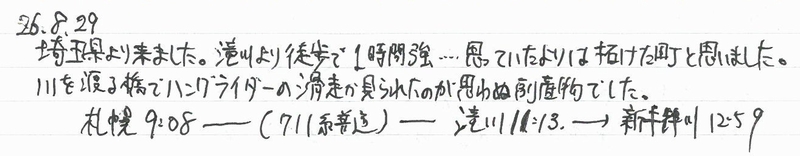 26.8.29
埼玉県より来ました。滝川より徒歩で1時間強…思っていたよりは拓けた町と思いました。
川を渡る橋でハングライダーの滑走が見られたのが思わぬ副産物でした。
札幌 9:08 ——(711系普通)—— 滝川 11:13. → 新十津川 12:59